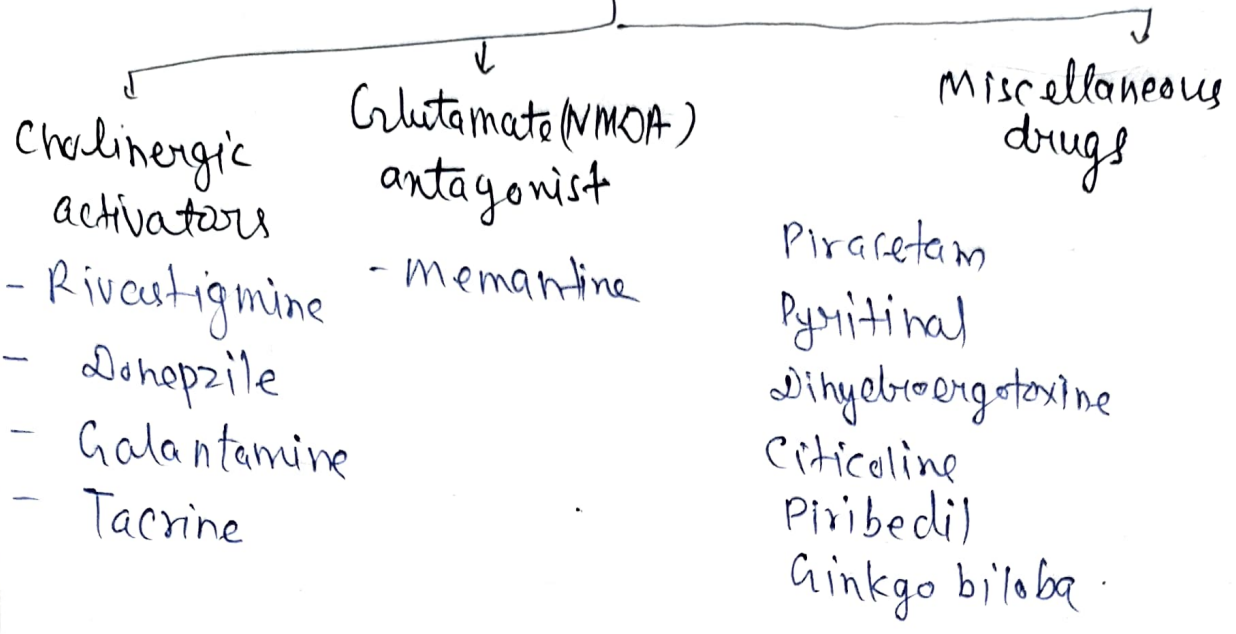 Cholinergic
activators
- Rivastigmine
- Donepzile
- Galantamine
- Tacrine
Glutamate (NMDA)
antagonist
- Memantine
Miscellaneous
drugs
Piracetam
Pyritinal
Dihyebroergotoxine
Citicoline
Piribedil
Ginkgo biloba.